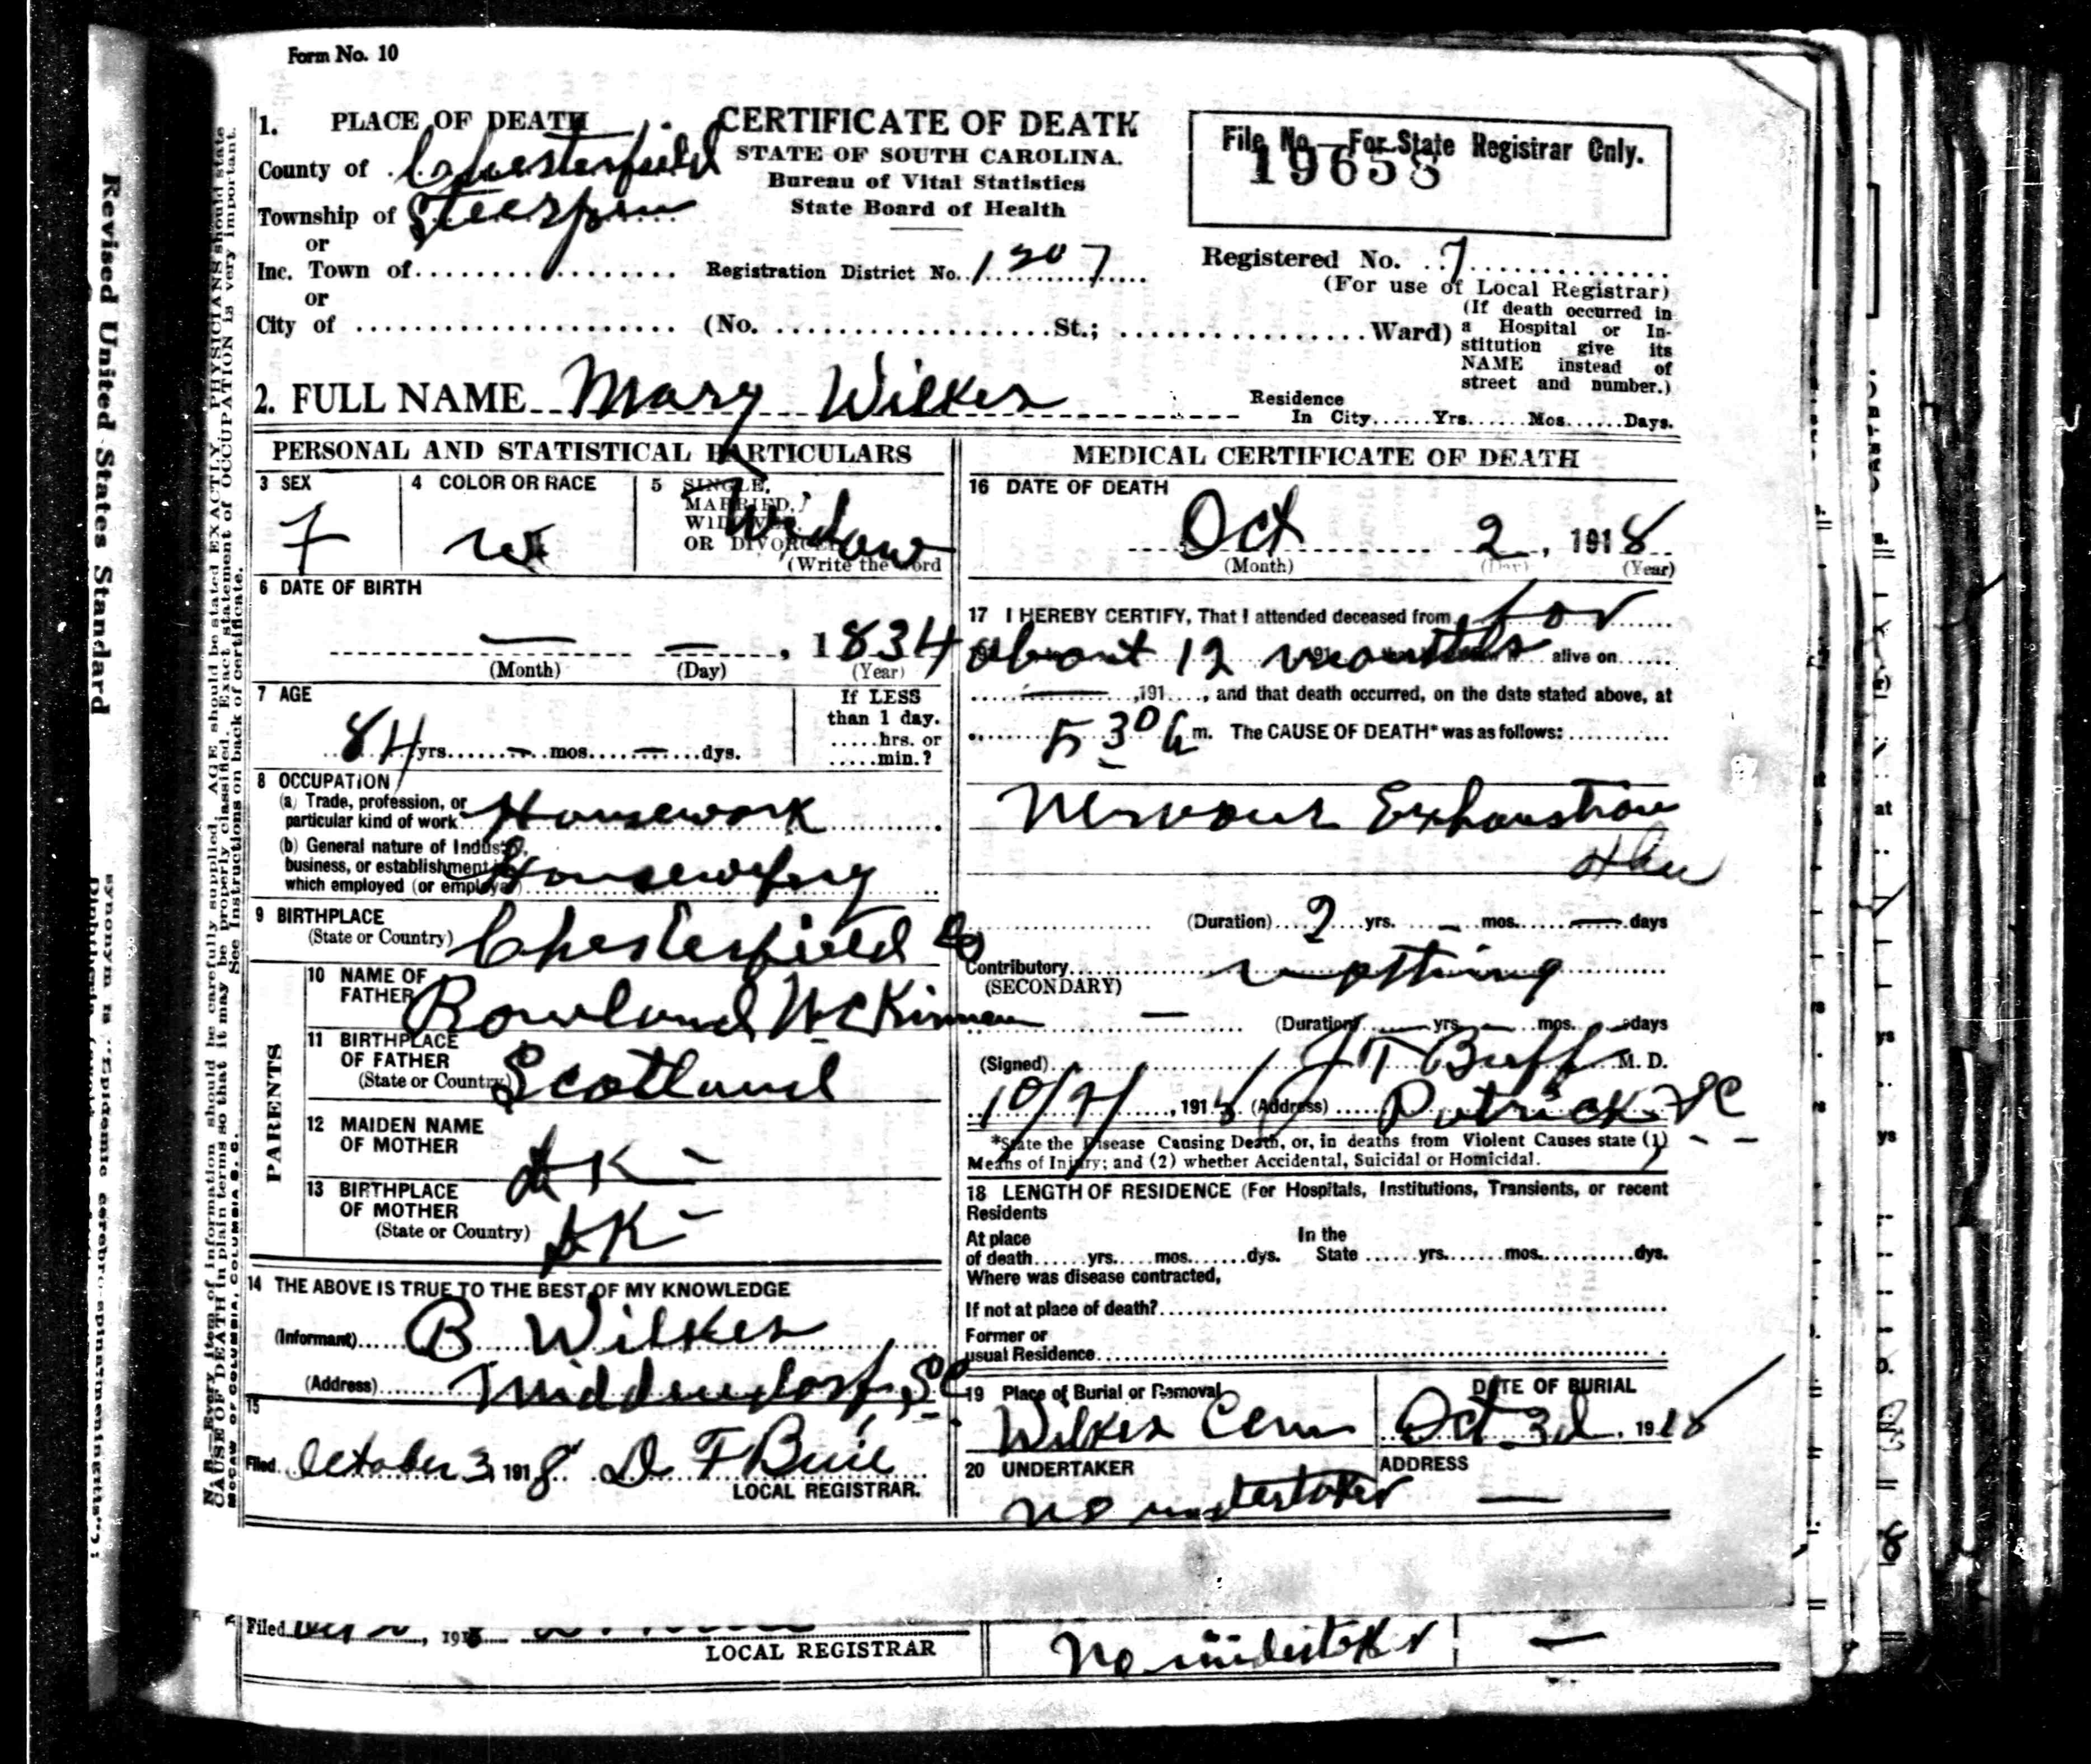 Form No. 10
1. PLACE OF DEATH
County of Chesterfield
Township of Steerpen
or
Inc. Town of
or
City of (No. St.; Ward)
CERTIFICATE OF DEATH
STATE OF SOUTH CAROLINA.
Bureau of Vital Statistics
State Board of Health
Registration District No. 1207
File No.—For State Registrar Only.
19658
Registered No. 7
(For use of Local Registrar)
(If death occurred in
a Hospital or In-
stitution give its
NAME instead of
street and number.)
2. FULL NAME Mary Wilkes
Residence
In City Yrs. Mos. Days.
PERSONAL AND STATISTICAL PARTICULARS
3 SEX
F
4 COLOR OR RACE
W
5 SINGLE,
MARRIED,
WIDOWED,
OR DIVORCED
Widow
(Write the word
6 DATE OF BIRTH
— — , 1834
(Month) (Day) (Year)
7 AGE
84 yrs. — mos. — dys.
If LESS
than 1 day.
hrs. or
min.?
8 OCCUPATION
(a) Trade, profession, or
particular kind of work Housework
(b) General nature of Industry,
business, or establishment in
which employed (or employer) Housewifery
9 BIRTHPLACE
(State or Country) Chesterfield Co
PARENTS
10 NAME OF
FATHER Rowland McKinnon
11 BIRTHPLACE
OF FATHER
(State or Country) Scotland
12 MAIDEN NAME
OF MOTHER DK -
13 BIRTHPLACE
OF MOTHER
(State or Country) DK -
14 THE ABOVE IS TRUE TO THE BEST OF MY KNOWLEDGE
(Informant) B Wilkes
(Address) Middendorf, SC
15
Filed October 3, 1918 D. F Buie
LOCAL REGISTRAR.
MEDICAL CERTIFICATE OF DEATH
16 DATE OF DEATH
Oct 2, 1918
(Month) (Day) (Year)
17 I HEREBY CERTIFY, That I attended deceased from for
about 12 months alive on
— ,191 , and that death occurred, on the date stated above, at
5 30 m. The CAUSE OF DEATH* was as follows:
Nervous Exhaustion
(Duration) 2 yrs. — mos. — days
Contributory nothing
(SECONDARY)
— (Duration) — yrs. — mos. — days
(Signed) J T Buff M. D.
10/2/ , 1918 (Address) Patrick SC
*State the Disease Causing Death, or, in deaths from Violent Causes state (1)
Means of Injury; and (2) whether Accidental, Suicidal or Homicidal.
18 LENGTH OF RESIDENCE (For Hospitals, Institutions, Transients, or recent
Residents
At place
of death yrs. mos. dys.
In the
State yrs. mos. dys.
Where was disease contracted,
If not at place of death?
Former or
usual Residence
19 Place of Burial or Removal
Wilkes Cem
DATE OF BURIAL
Oct 3d, 1918
20 UNDERTAKER
no undertaker
ADDRESS
—
Filed , 1918
LOCAL REGISTRAR
No undertaker —
Revised United States Standard
N. B.—Every item of information should be carefully supplied. AGE should be stated EXACTLY. PHYSICIANS should state
CAUSE OF DEATH in plain terms so that it may be properly classified. Exact statement of OCCUPATION is very important.
See Instructions on back of certificate.
McCAW OF COLUMBIA, COLUMBIA S. C.